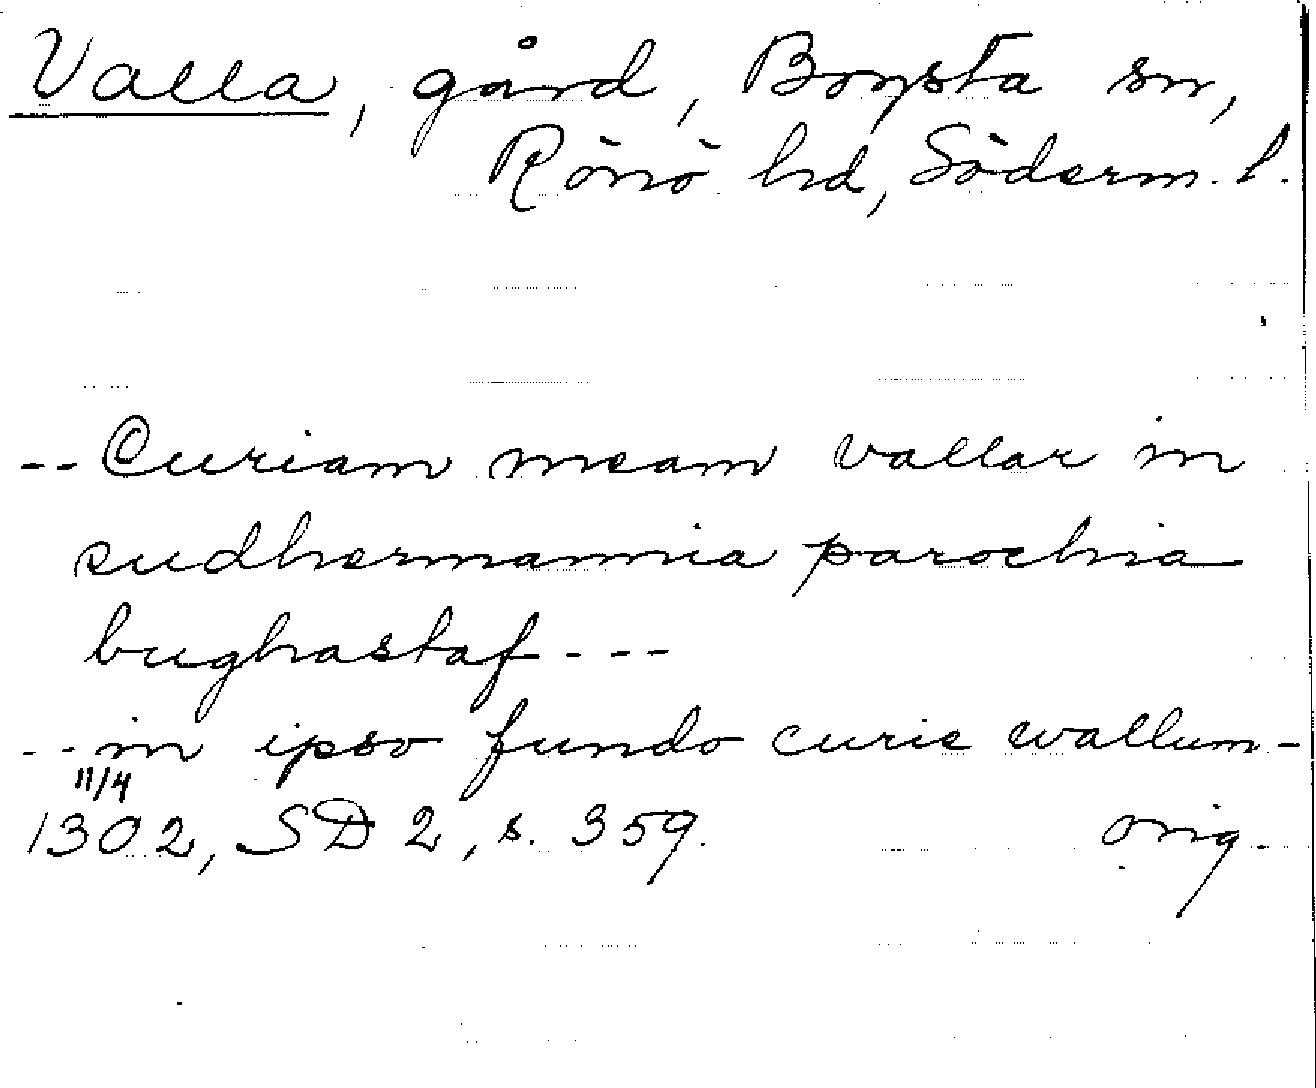 Valla, gård, Bogsta sn,
Rönö hd, Söderm. l.
-- Curiam meam vallar in
sudhermannia parochia
bughastaf ---
-- in ipso fundo curie wallum -
11/4
1302, SD 2, s. 359. orig.